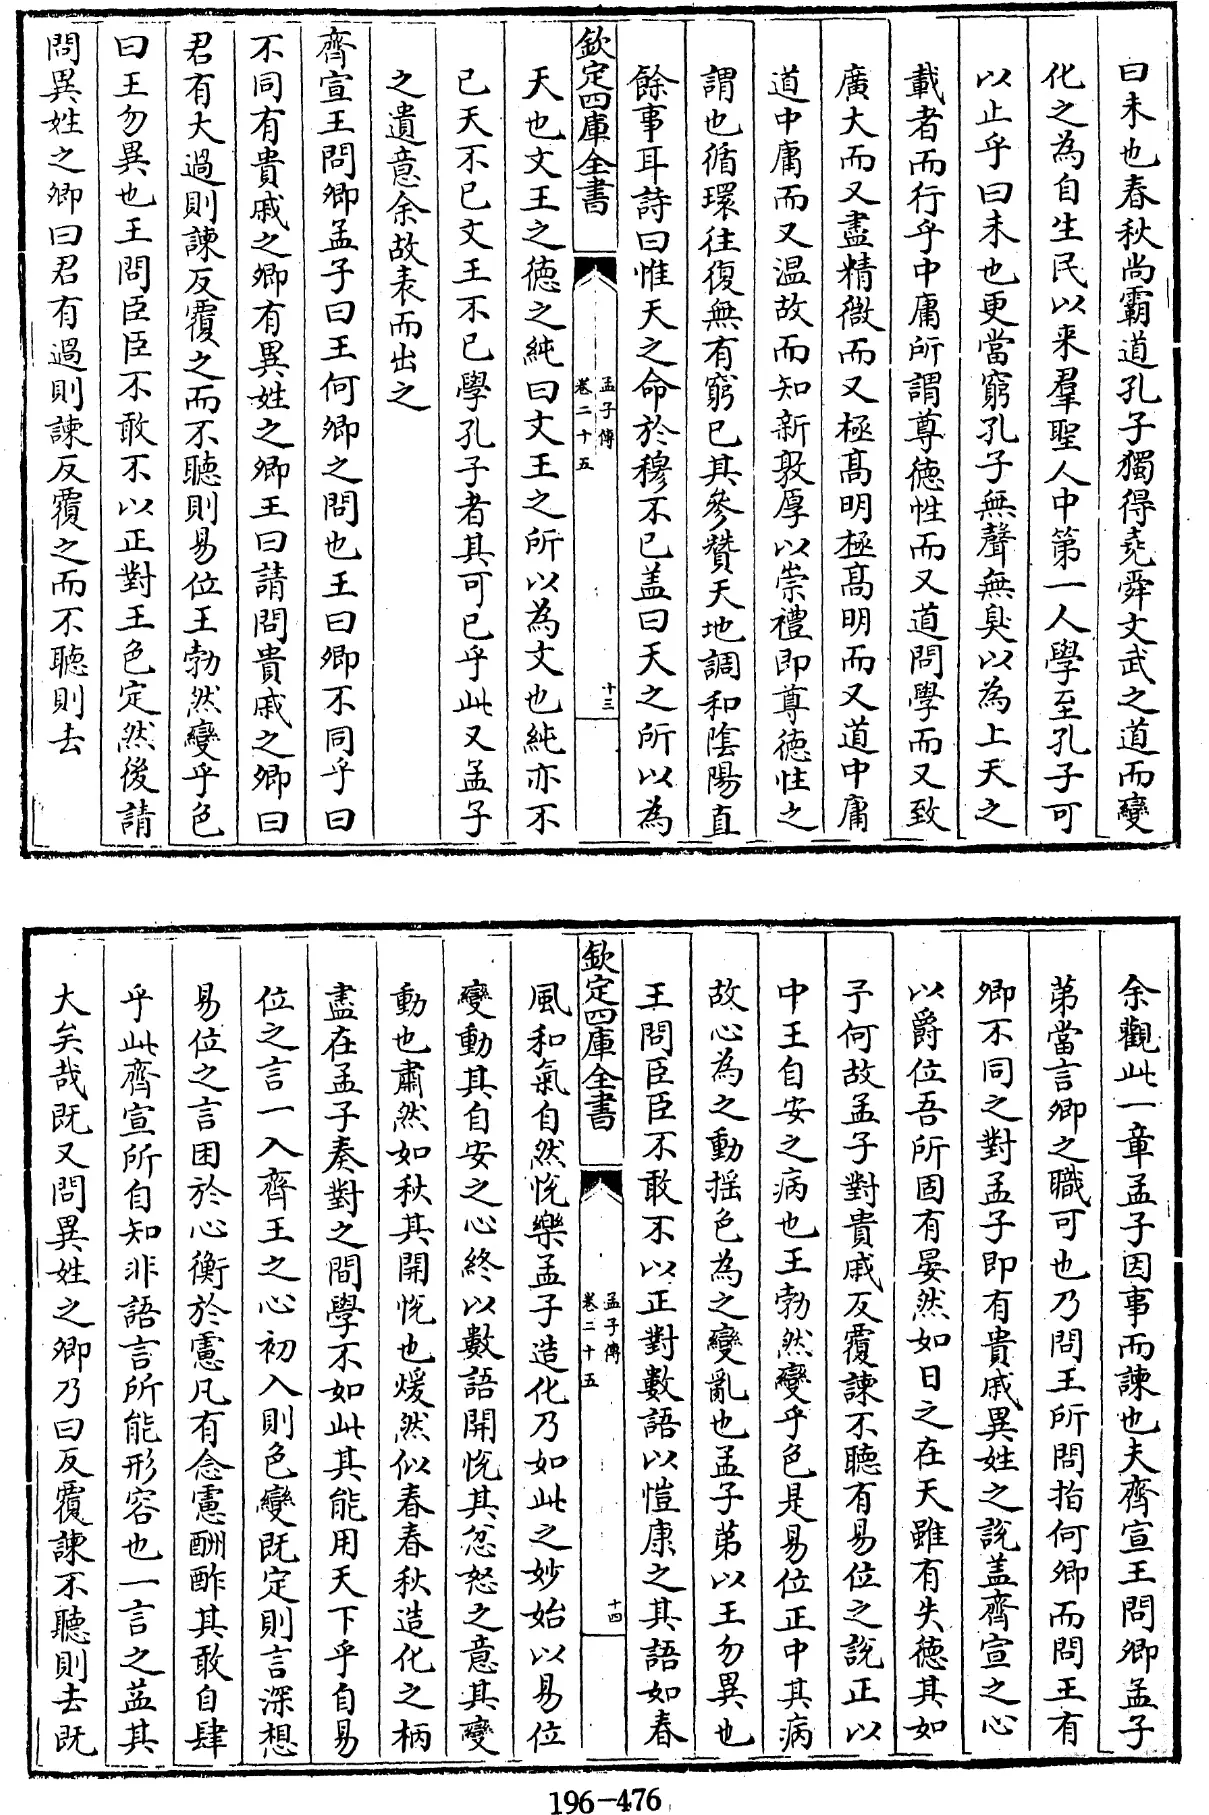 曰未也春秋尚霸道孔子獨得堯舜文武之道而變
化之為自生民以来羣聖人中第一人學至孔子可
以止乎曰未也更當窮孔子無聲無臭以為上天之
載者而行乎中庸所謂尊徳性而又道問學而又致
廣大而又盡精微而又極髙明極髙明而又道中庸
道中庸而又温故而知新敦厚以崇禮即尊徳性之
謂也循環往復無有窮已其參贊天地調和陰陽直
餘事耳詩曰惟天之命於穆不已盖曰天之所以為
欽定四庫全書
孟子傳
卷二十五
十三
天也文王之徳之純曰文王之所以為文也純亦不
已天不已文王不已學孔子者其可已乎此又孟子
之遺意余故表而出之
齊宣王問卿孟子曰王何卿之問也王曰卿不同乎曰
不同有貴戚之卿有異姓之卿王曰請問貴戚之卿曰
君有大過則諫反覆之而不聴則易位王勃然變乎色
曰王勿異也王問臣臣不敢不以正對王色定然後請
問異姓之卿曰君有過則諫反覆之而不聴則去
余觀此一章孟子因事而諫也夫齊宣王問卿孟子
第當言卿之職可也乃問王所問指何卿而問王有
卿不同之對孟子即有貴戚異姓之說盖齊宣之心
以爵位吾所固有晏然如日之在天雖有失徳其如
予何故孟子對貴戚反覆諫不聴有易位之說正以
中王自安之病也王勃然變乎色是易位正中其病
故心為之動揺色為之變亂也孟子第以王勿異也
王問臣臣不敢不以正對數語以愷康之其語如春
欽定四庫全書
孟子傳
卷二十五
十四
風和氣自然悅樂孟子造化乃如此之妙始以易位
變動其自安之心終以數語開悅其忿怒之意其變
動也肅然如秋其開悅也煖然似春春秋造化之柄
盡在孟子奏對之間學不如此其能用天下乎自易
位之言一入齊王之心初入則色變既定則言深想
易位之言困於心衡於慮凡有念慮酬酢其敢自肆
乎此齊宣所自知非語言所能形容也一言之益其
大矣哉既又問異姓之卿乃曰反覆諫不聴則去既
196-476